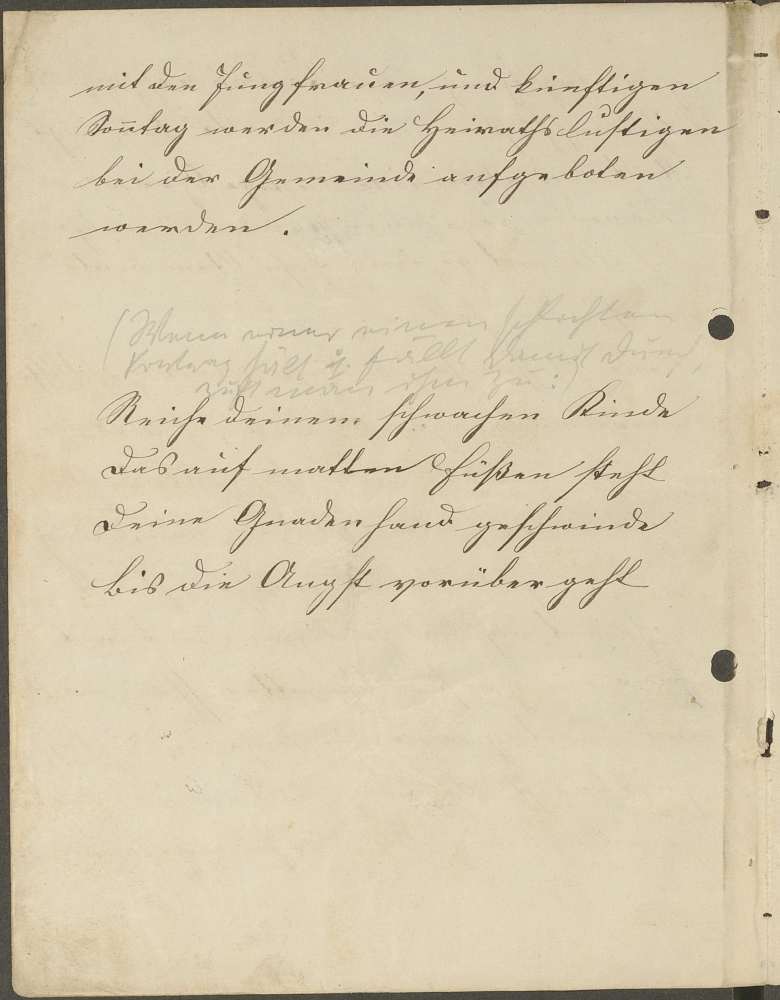 mit den Jungfrauen, und künftigen
Soñtag werden die Heirathslustigen
bei der Gemeinde aufgeboten
werden.
(Wenn einer einen schlechten
Vortrag hält u. fällt damit durch,
ruft man ihm zu:)
Reiche deinem schwachen Kinde
Das auf matten Füßen steht
Deine Gnadenhand geschwinde
Bis die Angst vorüber geht